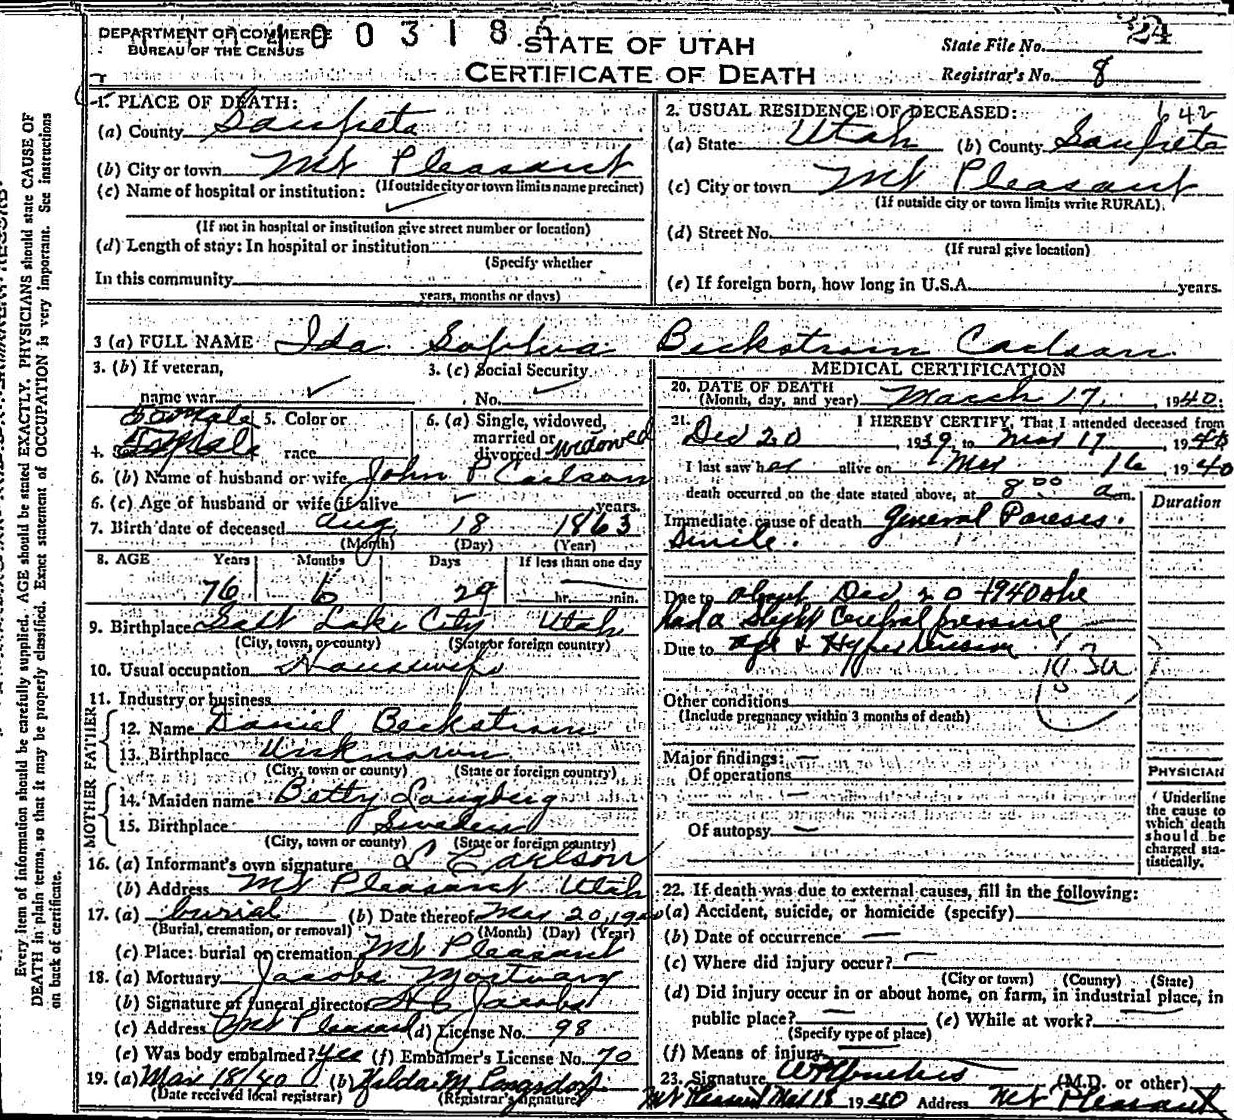 DEPARTMENT OF COMMERCE
BUREAU OF THE CENSUS
STATE OF UTAH
CERTIFICATE OF DEATH
State File No. 24
Registrar's No. 8
1. PLACE OF DEATH:
(a) County Sanpete
(b) City or town Mt Pleasant
(If outside city or town limits name precinct)
(c) Name of hospital or institution:
(If not in hospital or institution give street number or location)
(d) Length of stay: In hospital or institution
(Specify whether
In this community
years, months or days)
2. USUAL RESIDENCE OF DECEASED:
(a) State Utah (b) County Sanpete
(c) City or town Mt Pleasant
(If outside city or town limits write RURAL)
(d) Street No.
(If rural give location)
(e) If foreign born, how long in U.S.A. years.
3 (a) FULL NAME Ida Sophia Beckstrom Carlson
3. (b) If veteran,
name war
3. (c) Social Security
No.
Female
4. Female
5. Color or
race
6. (a) Single, widowed,
married or
divorced widowed
6. (b) Name of husband or wife John P Carlson
6. (c) Age of husband or wife if alive years.
7. Birth date of deceased Aug 18 1863
(Month) (Day) (Year)
8. AGE Years Months Days If less than one day
76 6 29 hr. min.
9. Birthplace Salt Lake City Utah
(City, town, or county) (State or foreign country)
10. Usual occupation Housewife
11. Industry or business
FATHER
12. Name Daniel Beckstrom
13. Birthplace Unknown
(City, town or county) (State or foreign country)
MOTHER
14. Maiden name Betty Langberg
15. Birthplace Sweden
(City, town or county) (State or foreign country)
16. (a) Informant's own signature L Carlson
(b) Address Mt Pleasant Utah
17. (a) burial (b) Date thereof Mar 20, 1940
(Burial, cremation, or removal) (Month) (Day) (Year)
(c) Place: burial or cremation Mt Pleasant
18. (a) Mortuary Jacobs Mortuary
(b) Signature of funeral director Jacobs
(c) Address Mt Pleasant (d) License No. 98
(e) Was body embalmed? Yes (f) Embalmer's License No. 70
19. (a) Mar 18/40 (b) Hilda M
(Date received local registrar) (Registrar's signature)
MEDICAL CERTIFICATION
20. DATE OF DEATH
(Month, day, and year) March 17, 1940
21. I HEREBY CERTIFY, That I attended deceased from
Dec 20 1939, to Mar 17, 1940
I last saw her alive on Mar 16, 1940
death occurred on the date stated above, at 8 00 a.m.
Duration
Immediate cause of death General Pareses.
Sinile.
Due to about Dec 20 1940 she
had a slight Cerebral pressure
Due to age & Hypertension
Other conditions
(Include pregnancy within 3 months of death)
Major findings:
Of operations
Of autopsy
PHYSICIAN
Underline
the cause to
which death
should be
charged sta-
tistically.
22. If death was due to external causes, fill in the following:
(a) Accident, suicide, or homicide (specify)
(b) Date of occurrence
(c) Where did injury occur?
(City or town) (County) (State)
(d) Did injury occur in or about home, on farm, in industrial place, in
public place? (e) While at work?
(Specify type of place)
(f) Means of injury
23. Signature (M.D. or other)
Mt Pleasant Mar 18 1940 Address Mt Pleasant
Every item of information should be carefully supplied. AGE should be stated EXACTLY. PHYSICIANS should state CAUSE OF
DEATH in plain terms, so that it may be properly classified. Exact statement of OCCUPATION is very important. See instructions
on back of certificate.